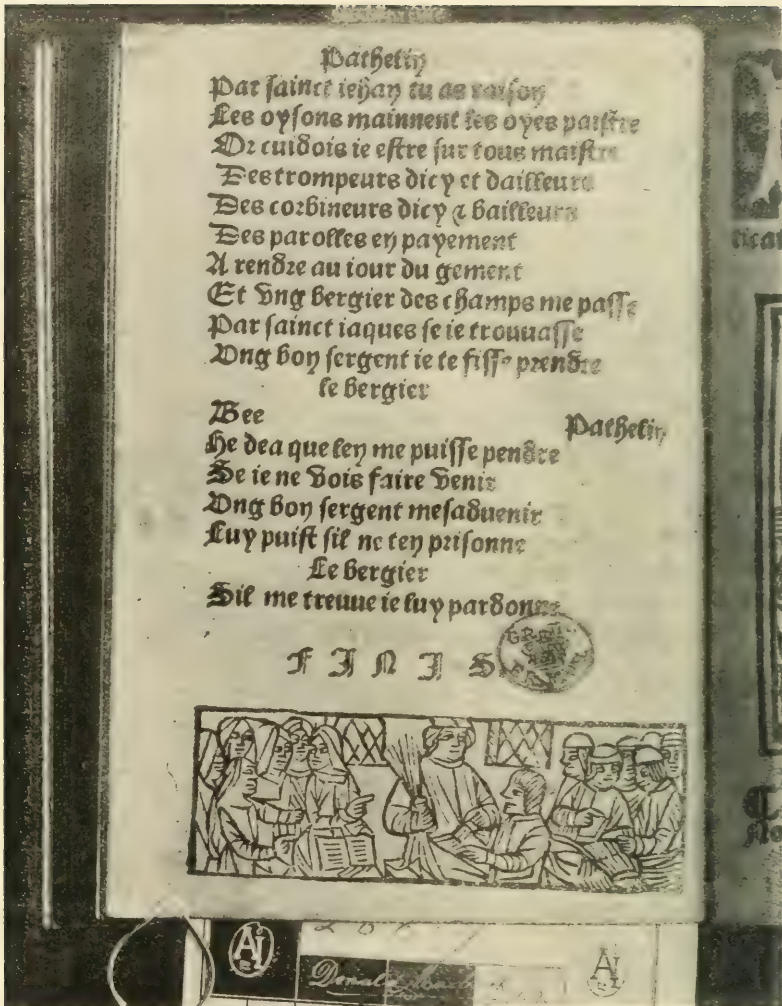 Pathelin
Par sainct iehan tu as raison
Les oysons mainnent les oyes paistre
Or cuidois ie estre sur tous maistre
Des trompeurs dicy et dailleurs
Des corbineurs dicy ⁊ bailleurs
Des parolles en payement
A rendre au iour du gement
Et vng bergier des champs me passe
Par sainct iaques se ie trouuasse
Vng bon sergent ie te fisse prendre
le bergier
Bee
Pathelin
He dea que len me puisse pendre
Se ie ne vois faire venir
Vng bon sergent mesaduenir
Luy puist sil ne ten prisonne
Le bergier
Sil me treuue ie luy pardonne
FINIS
AJ
Donald
AJ
ticat